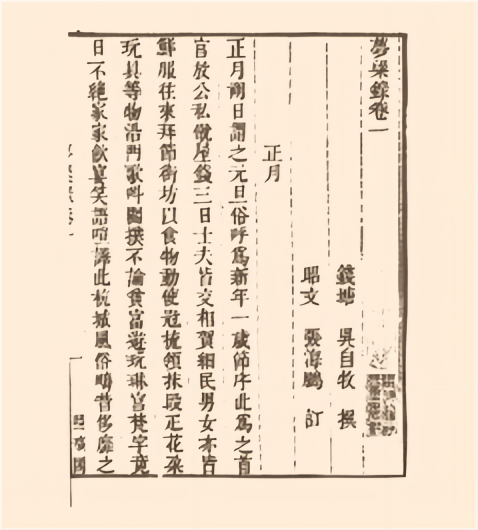 夢粱錄卷一
錢塘 吳自牧 撰
昭文 張海鵬 訂
正月
正月朔日謂之元旦俗呼爲新年一歲節序此爲之首
官放公私僦屋錢三日士夫皆交相賀細民男女亦皆
鮮服往來拜節街坊以食物動使冠梳領抹段疋花朶
玩具等物沿門歌叫關撲不論貧富遊玩琳宮梵宇竟
日不絕家家飮宴笑語喧譁此杭城風俗疇昔侈靡之